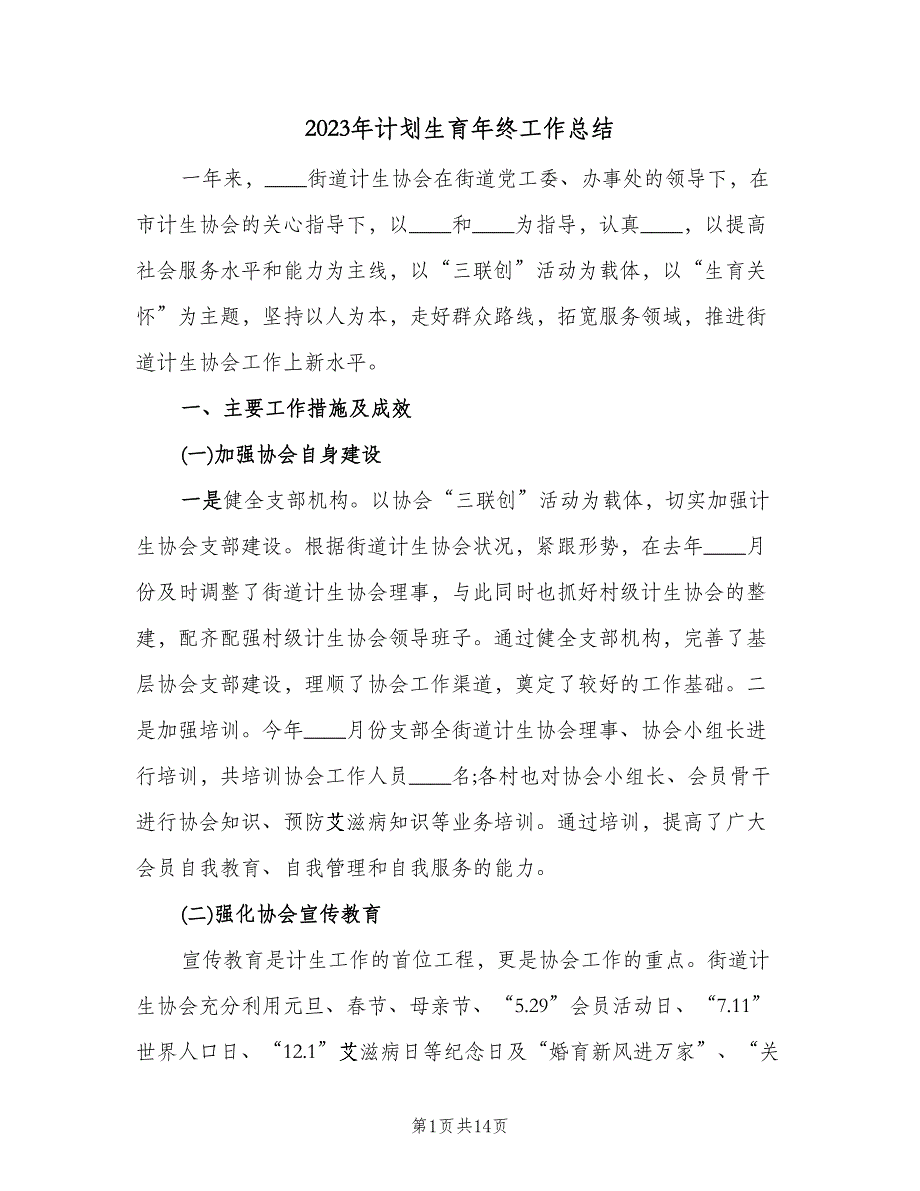 2023年计划生育年终工作总结
一年来，____街道计生协会在街道党工委、办事处的领导下，在
市计生协会的关心指导下，以____和____为指导，认真____，以提高
社会服务水平和能力为主线，以“三联创”活动为载体，以“生育关
怀”为主题，坚持以人为本，走好群众路线，拓宽服务领域，推进街
道计生协会工作上新水平。
一、主要工作措施及成效
(一)加强协会自身建设
一是健全支部机构。以协会“三联创”活动为载体，切实加强计
生协会支部建设。根据街道计生协会状况，紧跟形势，在去年____月
份及时调整了街道计生协会理事，与此同时也抓好村级计生协会的整
建，配齐配强村级计生协会领导班子。通过健全支部机构，完善了基
层协会支部建设，理顺了协会工作渠道，奠定了较好的工作基础。二
是加强培训。今年____月份支部全街道计生协会理事、协会小组长进
行培训，共培训协会工作人员____名;各村也对协会小组长、会员骨干
进行协会知识、预防艾滋病知识等业务培训。通过培训，提高了广大
会员自我教育、自我管理和自我服务的能力。
(二)强化协会宣传教育
宣传教育是计生工作的首位工程，更是协会工作的重点。街道计
生协会充分利用元旦、春节、母亲节、“5.29”会员活动日、“7.11”
世界人口日、“12.1”艾滋病日等纪念日及“婚育新风进万家”、“关
第1页共14页